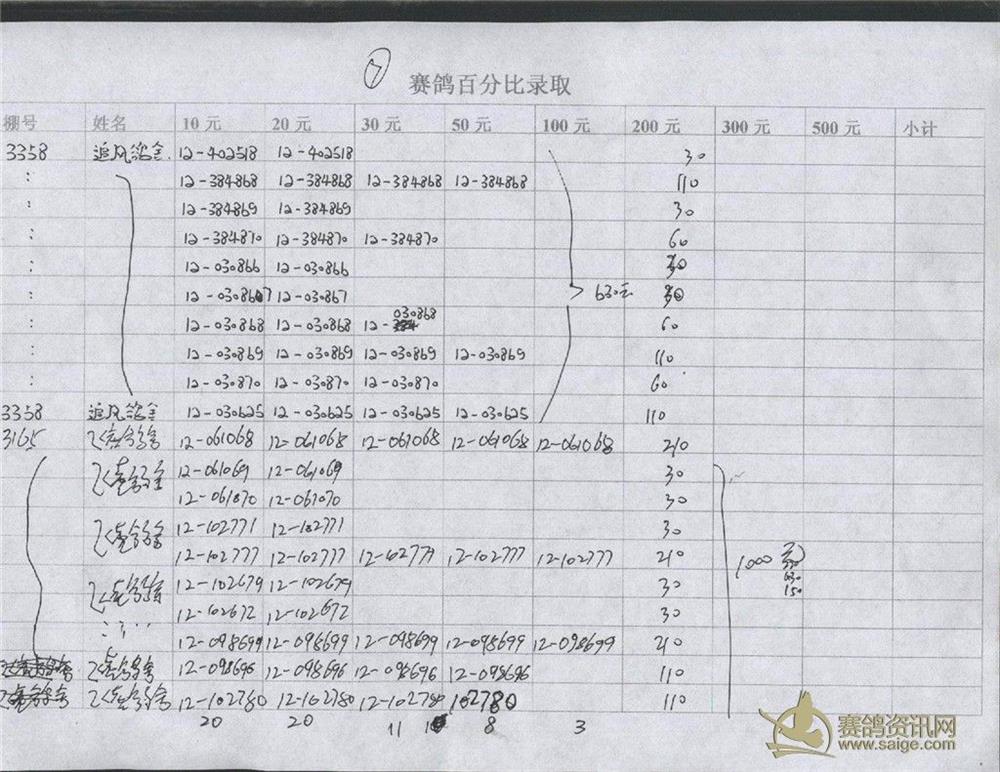 7
赛鸽百分比录取
棚号 姓名 10 元 20 元 30 元 50 元 100 元 200 元 300 元 500 元 小计
3358 追风鸽舍 12-402518 12-402518 30
: 12-384868 12-384868 12-384868 12-384868 110
: 12-384869 12-384869 30
: 12-384870 12-384870 12-384870 60
: 12-030866 12-030866 30
: 12-030867 12-030867 630元 30
: 12-030868 12-030868 12-030868 60
: 12-030869 12-030869 12-030869 12-030869 110
: 12-030870 12-030870 12-030870 60
3358 追风鸽舍 12-030625 12-030625 12-030625 12-030625 110
3165 12-061068 12-061068 12-061068 12-061068 12-061068 210
12-061069 12-061069 30
12-061070 12-061070 30
12-102771 12-102771 30
12-102777 12-102777 12-102777 12-102777 12-102777 210 1000元
12-102679 12-102679 30 630
12-102672 12-102672 30 150
12-098699 12-098699 12-098699 12-098699 12-098699 210
12-098696 12-098696 12-098696 12-098696 110
12-102780 12-102780 12-102780 102780 110
20 20 11 8 3
赛鸽资讯网
www.saige.com